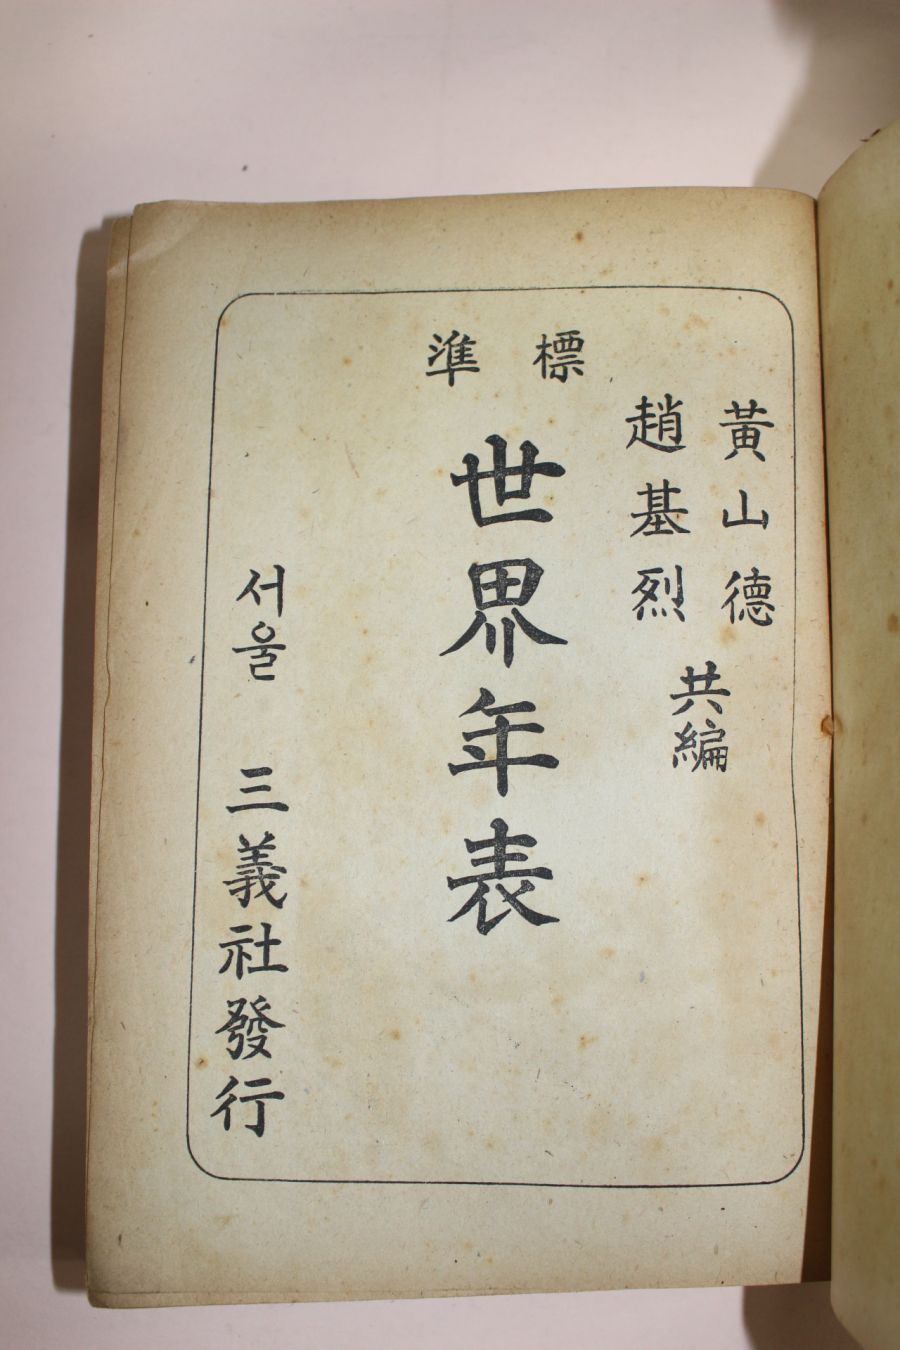 黃山德
趙基烈
共編
標準
世界年表
서울 三義社發行